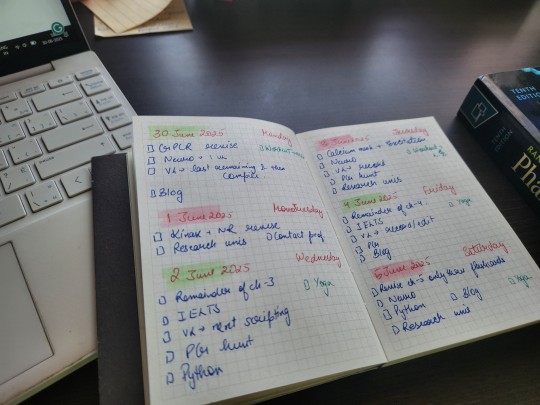 30 June 2025 Monday
GPCR revise
Neuro + 2 un
VL - last remaining & then
compile
Blog
1 June 2025
Kinas + NR revise
Research unis Contact prof
2 June 2025 Wednesday
Remainder of ch-3 Yoga
IELTS
VL → next scripting
PGr hunt
Python
June 2025
Neuro
VL → record
PGr hunt
Research unis
4 June 2025 Friday
Remainder of ch-4 Yoga
IELTS
VL → record/edit
PGr
Blog
June 2025 Saturday
Revise ch-3 only new flashcards
Neuro Yoga
Python Blog
Research unis
TENTH
EDITION
TENTH EDITION